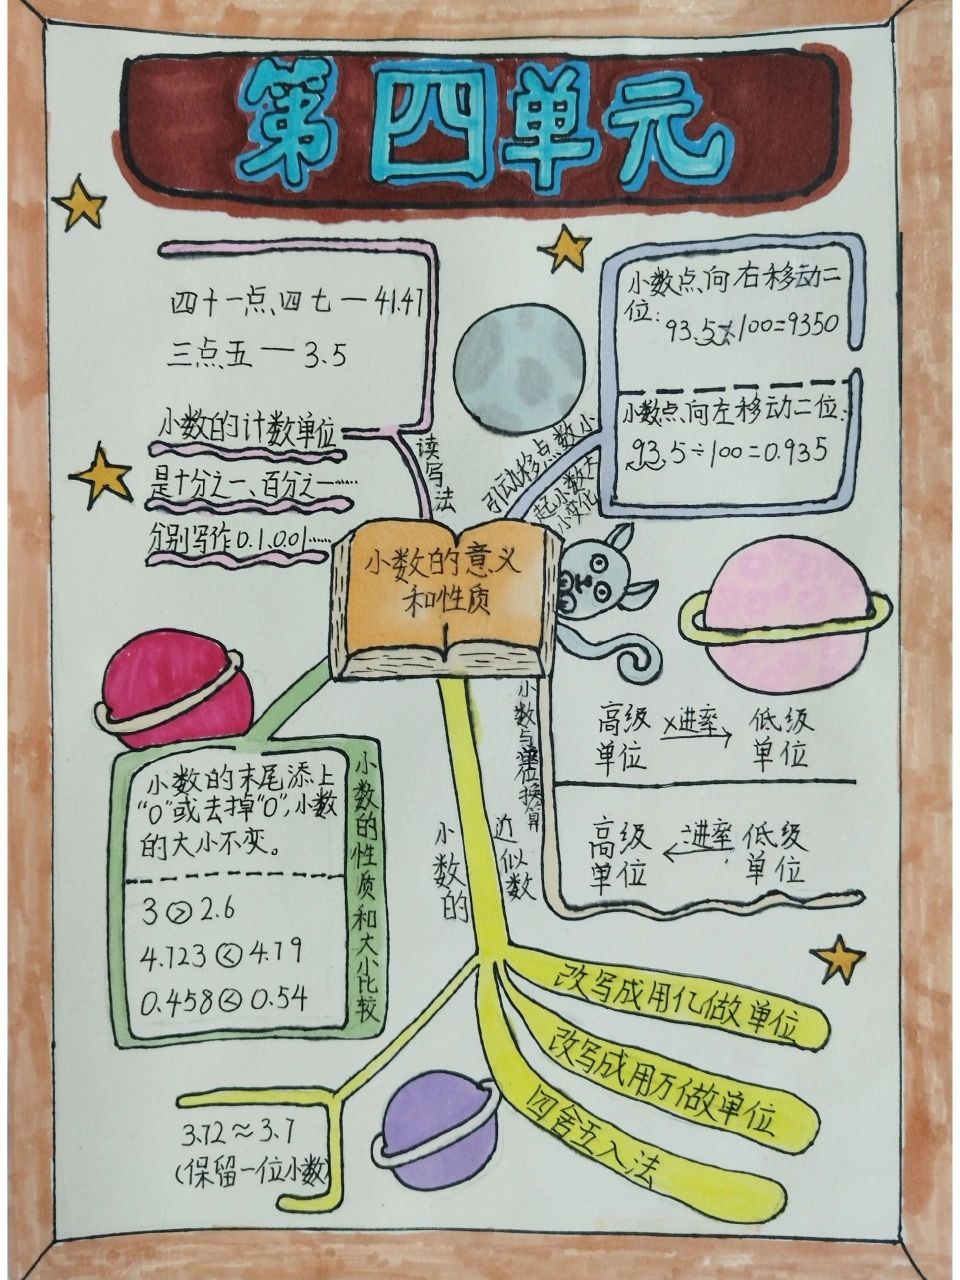 第四单元
四十一点四七 — 41.47
三点五 — 3.5
小数的计数单位
是十分之一、百分之一……
分别写作0.1、0.01……
读写法
小数点向右移动二
位：
93.5×100=9350
小数点向左移动二位：
93.5÷100=0.935
小数点移动引
起小数大
小变化
小数的意义
和性质
小数的末尾添上
“0”或去掉“0”，小数
的大小不变。
3 > 2.6
4.123 < 4.19
0.458 < 0.54
小数的性质和大小比较
小数与单位换算
高级
单位
×进率
低级
单位
高级
单位
进率
低级
单位
小数的
近似数
改写成用亿做单位
改写成用万做单位
四舍五入法
3.72≈3.7
(保留一位小数)